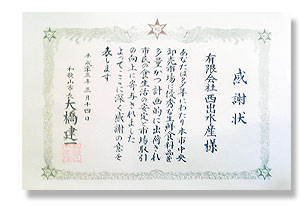 感謝状
有限会社西出水産様
あなたは多年にわたり本市中央
卸売市場に優秀な生鮮食料品を
多量かつ計画的に出荷され
市民の食生活の安定と市場取引
の向上に寄与されました
よってここに深く感謝の意を
表します
平成十三年三月十四日
和歌山市長大橋建一